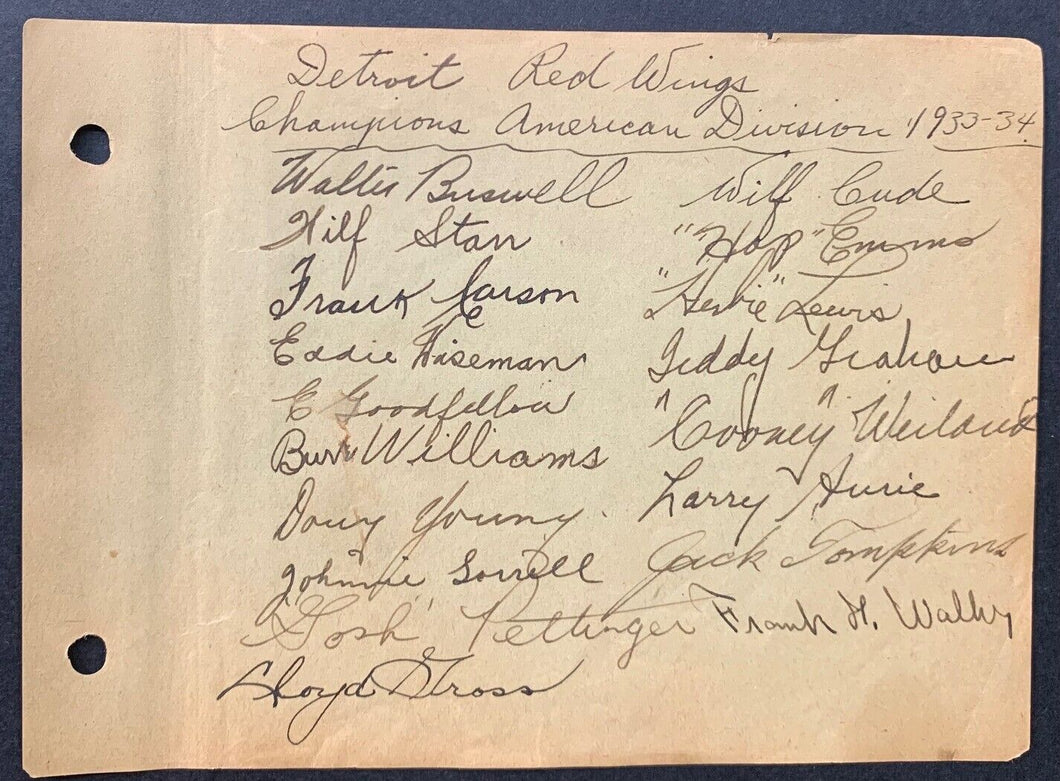 Detroit Red Wings
Champions American Division 1933-34
Walter Buswell
Wilf Starr
Frank Carson
Eddie Wiseman
E Goodfellow
Burr Williams
Doug Young.
Johnnie Sorrell
"Gosh" Pettinger
Lloyd Gross
Wilf Cude
"Hap" Emms
"Herbie" Lewis
Teddy Graham
"Cooney" Weiland
Larry Aurie
Jack Tompkins
Frank H.